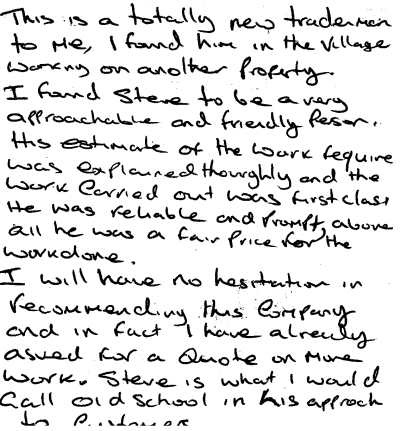 This is a totally new trademan
to me, I found him in the village
working on another property.
I found Steve to be a very
approachable and friendly Person.
His estimate of the work require
was explained thourghly and the
work Carried out was first class
He was reliable and Prompt, above
all he was a fair Price for the
workdone.
I will have no hesitation in
recommending this Company
and in fact I have already
asked for a Quote on more
work. Steve is what I would
Call old School in his approch
to Customers